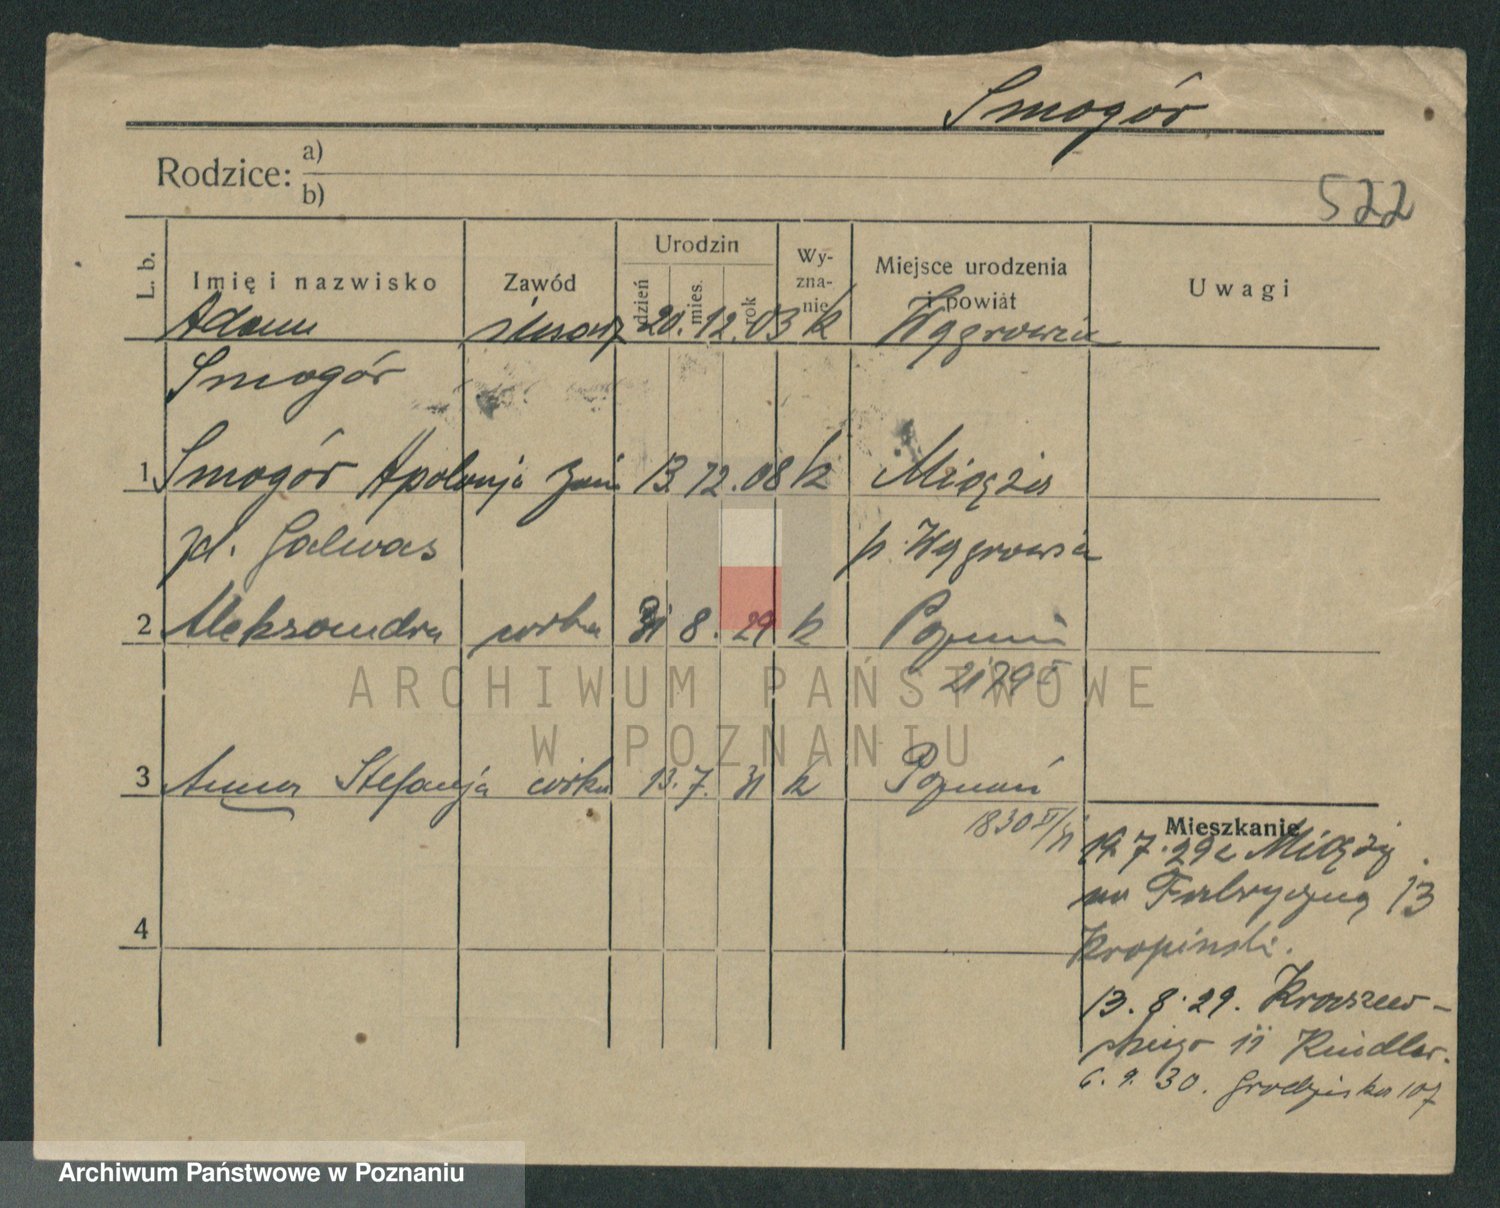 Smogór
Rodzice: a)
b)
522
L. b. Imię i nazwisko Zawód Urodzin dzień mies. rok Wy-zna-nie Miejsce urodzenia i powiat Uwagi
Adam ślusarz 20. 12. 03 k Wągrowiec
Smogór
1 Smogór Apolonja żona 13. 12. 08 k
zd. Galwas p. Wągrowiec
2 Aleksandra córka 31 8. 29 k Poznań
3 Anna Stefanja córka 13. 7. 31 k Poznań
1830
Mieszkanie
19. 7. 29 z
na Fabryczną 13
Kropinski.
4
13. 8. 29. Kraszew-
skiego 11 Kindler.
6. 9. 30. Grodziska 107
ARCHIWUM PAŃSTWOWE
W POZNANIU
Archiwum Państwowe w Poznaniu